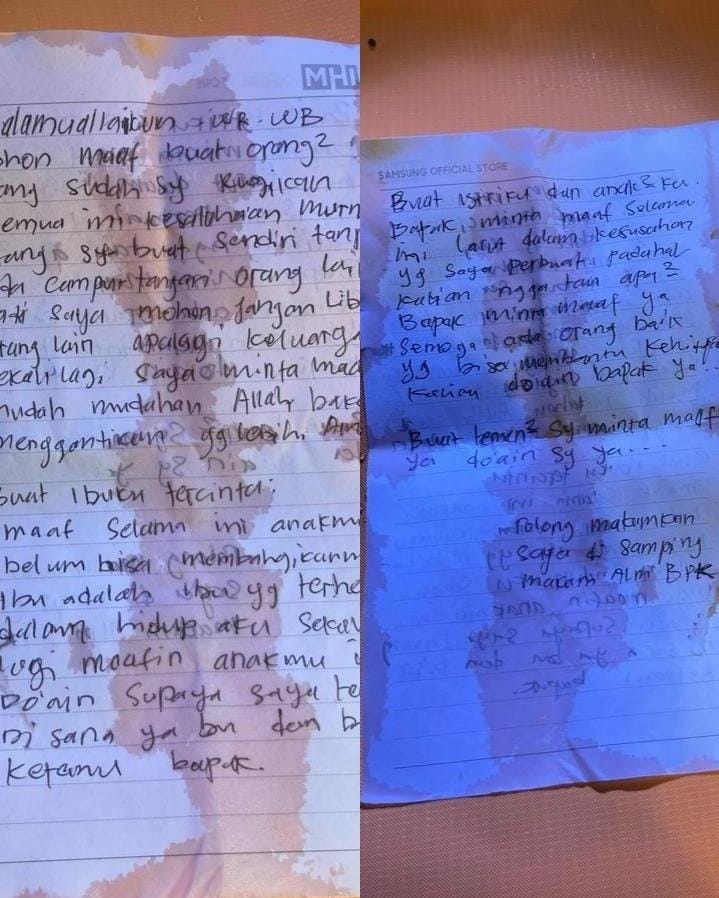 MHI
alamuallaikum WR. WB
ohon maaf buat orang2
ang sudah sy Rugikan
emua ini kesalahaan murn
ang sy buat sendiri tanp
da campurtangan orang lai
adi saya mohon Jangan Lib
rang lain apalagi keluarg
ekali lagi saya minta maa
mudah mudahan Allah, bak
menggantikan yg lebih. Am
buat Ibuku tercinta:
maaf Selama ini anakm
belum bisa membahgikann
Ibu adalah ibu yg terhe
dalam hidup aku Sekal
lagi maafin anakmu i
Do'ain Supaya saya te
Di sana ya bu dan b
Ketemu bapak.
SAMSUNG OFFICIAL STORE
Buat istriku dan anak2 ku.
Bapak minta maaf Selama
ini larut dalam kesusahan
yg saya perbuat, padahal
kalian nggatau apa2
Bapak minta maaf ya
Semoga ada orang baik
yg bisa membantu
kalian do'ain bapak ya..
Buat temen2 Sy minta maaf
ya do'ain Sy ya....
Tolong makamkan
saya di samping
makam Alm. BPK